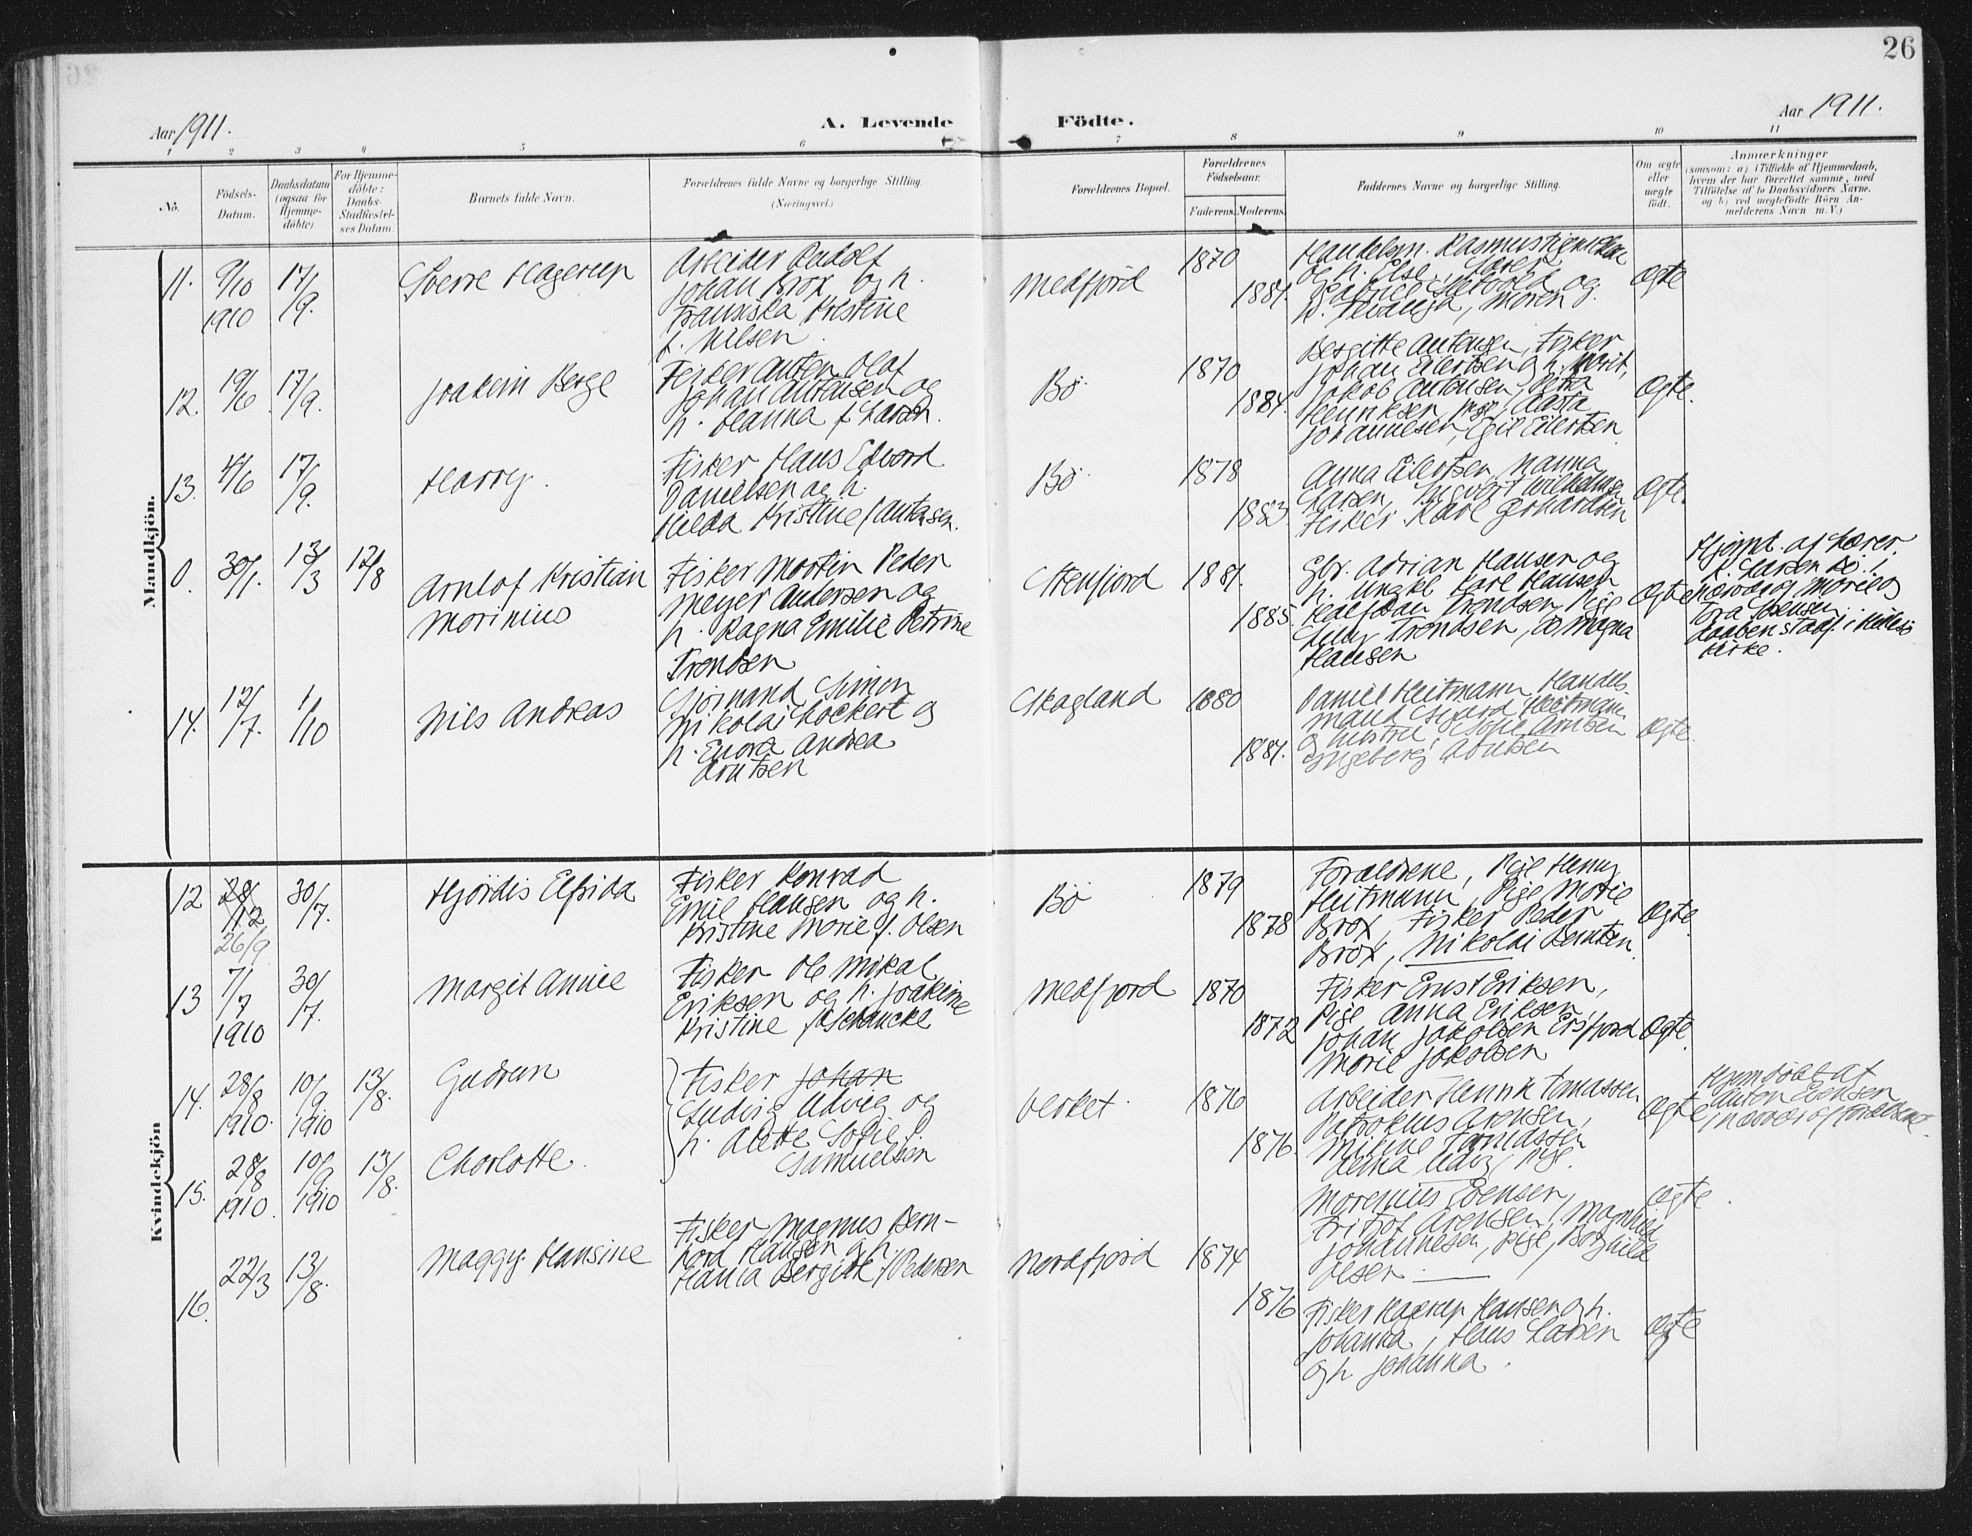 26
Aar 1911.
A. Levende
Födte.
Aar 1911.
1 2 3 4 5 6 7 8 9 10 11
No.
Födsels-Datum.
Daabsdatum (ogsaa for Hjemme-döbte).
For Hjemme-döbte: Daabs-Stadfæstel-ses Datum.
Barnets fulde Navn.
Forældrenes fulde Navne og borgerlige Stilling.
(Næringsvei.)
Forældrenes Bopæl.
Forældrenes Födselsaar.
Faderens. Moderens.
Faddernes Navne og borgerlige Stilling.
Om ægte eller uægte født.
Anmærkninger
(saasom: a) i Tilfælde af Hjemmedaab,
hvem der har forrettet samme, med
Tilföielse af to Daabsvidners Navne,
og b) ved uægtefödte Börn An-
melderens Navn m. V.)
Mandkjön.
11. 9/10 1910 17/9. Sverre Hagerup
Arbeider Rudolf
Johan Brox og h.
Fransiska Kristine
f. Nilsen.
Medfjord 1870 1881.
Handelsm.
og h. Else, Lærer
og
h. Moren
Ægte
12. 19/6 17/9. Joakim Berge
Fisker Anton Olaf
Johan Antonsen og
h. Hanna f. Larsen.
Bø 1870 1884.
Bergitte Antonsen, Fisker
Johan Eilertsen og h. Marit,
Jakob Antonsen, Petra
Henriksen Pige, Aasta
Johannesen, Egil Eilertsen
Ægte.
13. 4/6 17/9. Harry.
Fisker Hans Edvard
Danielsen og h.
Hilda Kristine f. Antonsen.
Bø 1878 1883
Anna Eilertsen, Nanna
Larsen, Sigvart Wilhelmsen
Fisker Karl Gerhardsen
Ægte.
0. 30/1. 13/3 12/8 Arnlof Kristian
Morinius
Fisker Martin Peder
Meyer Andersen og
h. Ragna Emilie Petrine
Trondsen
Stenfjord 1881. 1885
Gbr. Adrian Hansen og
h. Ungkl Karl Hansen
Trondsen, Pige
Trondsen, do Magna
Hansen
Ægte
Hjemd. af Lærer
Larsen Bø i
nærvær af Marie og
Tora Evensen
daaben stadf. i Hillesø
kirke.
14. 12/7. 1/10 Nils Andreas
Sjömand Simon
Nikolai Lockert og
h. Enora Andrea
Arntsen
Skagland 1880 1881.
Daniel Heitmann, Handels-
mand Sigurd Heitmann
og hustru Sofie Arntsen
Ingeborg Arntsen
Ægte.
Kvindekjön
12 28/12 26/9 30/7. Hjördis Elfrida
Fisker Konrad
Emil Hansen og h.
Kristine Marie f. Olsen
Bø 1879 1878
Forældrene, Pige Henny
Heitmann, Pige Marie
Brox, Fisker Peder
Brox, Nikolai Berntsen.
Ægte.
13 7/7 1910 30/7. Margit Annie
Fisker Ole Mikal
Eriksen og h. Joakime
Kristine f. Schancke
Medfjord 1870 1872
Fisker Ernst Eriksen,
Pige Anna Eriksen,
Johan Jakobsen Ersfjord
Marie Jakobsen
Ægte.
14. 28/8 1910. 10/9 1910 13/8. Gudrun
Fisker Johan
Ludvig Udvig og
h. Alette Sofie f.
Samuelsen
Verket. 1876 1876.
Arbeider Henrik Tomassen
Petrokus Arensen,
Tomassen
Udvig, Pige.
Ægte
Hjemdöbt af
Anton Evensen
i nærvær af Forældrene.
15. 28/8 1910. 10/9 1910 13/8. Charlotte.
Morenius Evensen,
Fritjof Arensen, Magnhild
Johannesen, Pige, Borghild
Olsen.
Ægte
16. 22/3 13/8. Maggy Hansine
Fisker Magnus Bern-
hard Hansen og h.
Hanna Bergitte f. Pedersen
Nordfjord 1874 1876
Fisker Hagerup Hansen og h.
Johanna, Hans Larsen
og h. Johanna.
Ægte